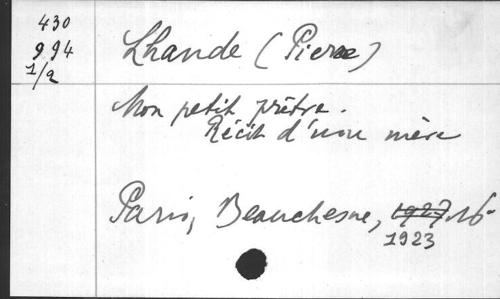 430
994
1/2
Lhande (Pierre)
Mon petit prêtre.
Récit d'une mère
Paris, Beauchesne, 1927. 16°
1923